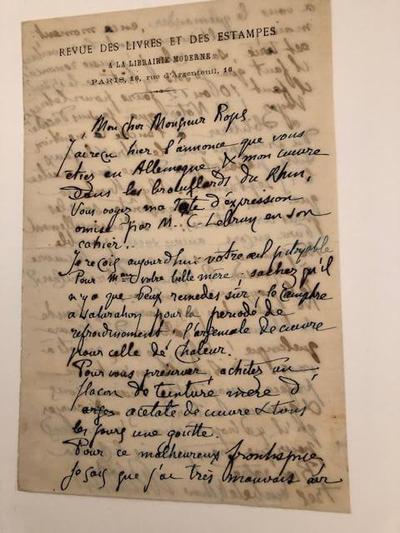 REVUE DES LIVRES ET DES ESTAMPES
A LA LIBRAIRIE MODERNE
PARIS, 16, rue d'Argenteuil, 16
Mon cher Monsieur Rops
J'ai reçu hier l'annonce que vous
étiez en Allemagne & mon cuivre
dans les brouillards du Rhin,
Vous voyez ma tête d'expression
omise par M. C. Lebrun en son
cahier!.
Je reçois aujourd'hui votre mot pitoyable
Pour Mme votre belle mère: sachez qu'il
n'y a que deux remèdes sûr: le Camphre
à saturation pour la période de
refroidissement l'arséniate de cuivre
pour celle de Chaleur.
Pour vous préserver achetez un
flacon de teinture mère d'
acétate de cuivre & tous
les jours une goutte.
Pour ce malheureux frontispice
Je sais que j'ai très mauvais air